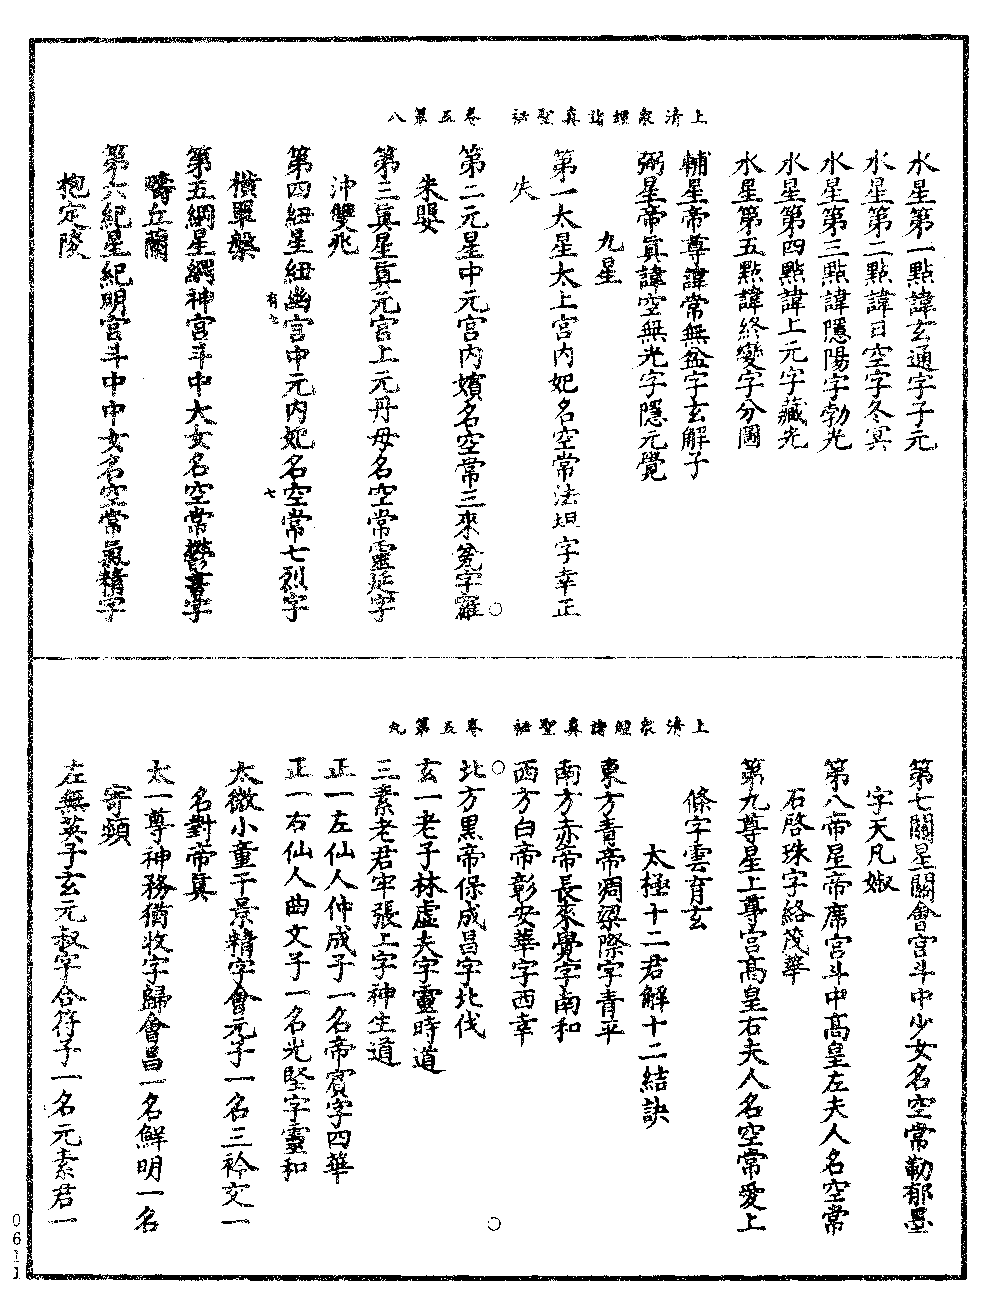 上清衆經諸眞聖祕　卷五第八
水星第一點諱玄通字子元
水星第二點諱日空字冬冥
水星第三點諱隱陽字勃光
水星第四點諱上元字藏光
水星第五點諱終變字分圖
輔星帝尊諱常無盆字玄解子
弼星帝眞諱空無光字隱元覺
九星
第一太星太上宮內妃名空常法坦字幸正
失
第二元星中元宮內嬪名空常三來瓮字窿
朱嬰
第三眞星眞元宮上元丹母名空常靈延字
沖雙兆
第四紐星紐幽宮中元內妃名空常七烈字
橫單槃
第五綱星綱神宮斗中大女名空常鬱書字
疇丘蘭
第六紀星紀明宮斗中中女名空常氣精字
抱定陵
上清衆經諸眞聖祕　卷五第九
第七關星關會宮斗中少女名空常勒郁墨
字天凡婌
第八帝星帝席宮斗中高皇左夫人名空常
石啓珠字絡茂華
第九尊星上尊宮高皇右夫人名空常愛上
條字雲育玄
太極十二君解十二結訣
東方青帝凋梁際字青平
南方赤帝長來覺字南和
西方白帝彰安華字西幸
北方黑帝保成昌字北伐
玄一老子林虛夫字靈時道
三素老君牢張上字神生道
正一左仙人仲成子一名帝賓字四華
正一右仙人曲文子一名光堅字靈和
太微小童干景精字會元子一名三衿交一
名對帝眞
太一尊神務猶收字歸會昌一名鮮明一名
寄頻
左無英子玄元叔字合符子一名元素君一
0611